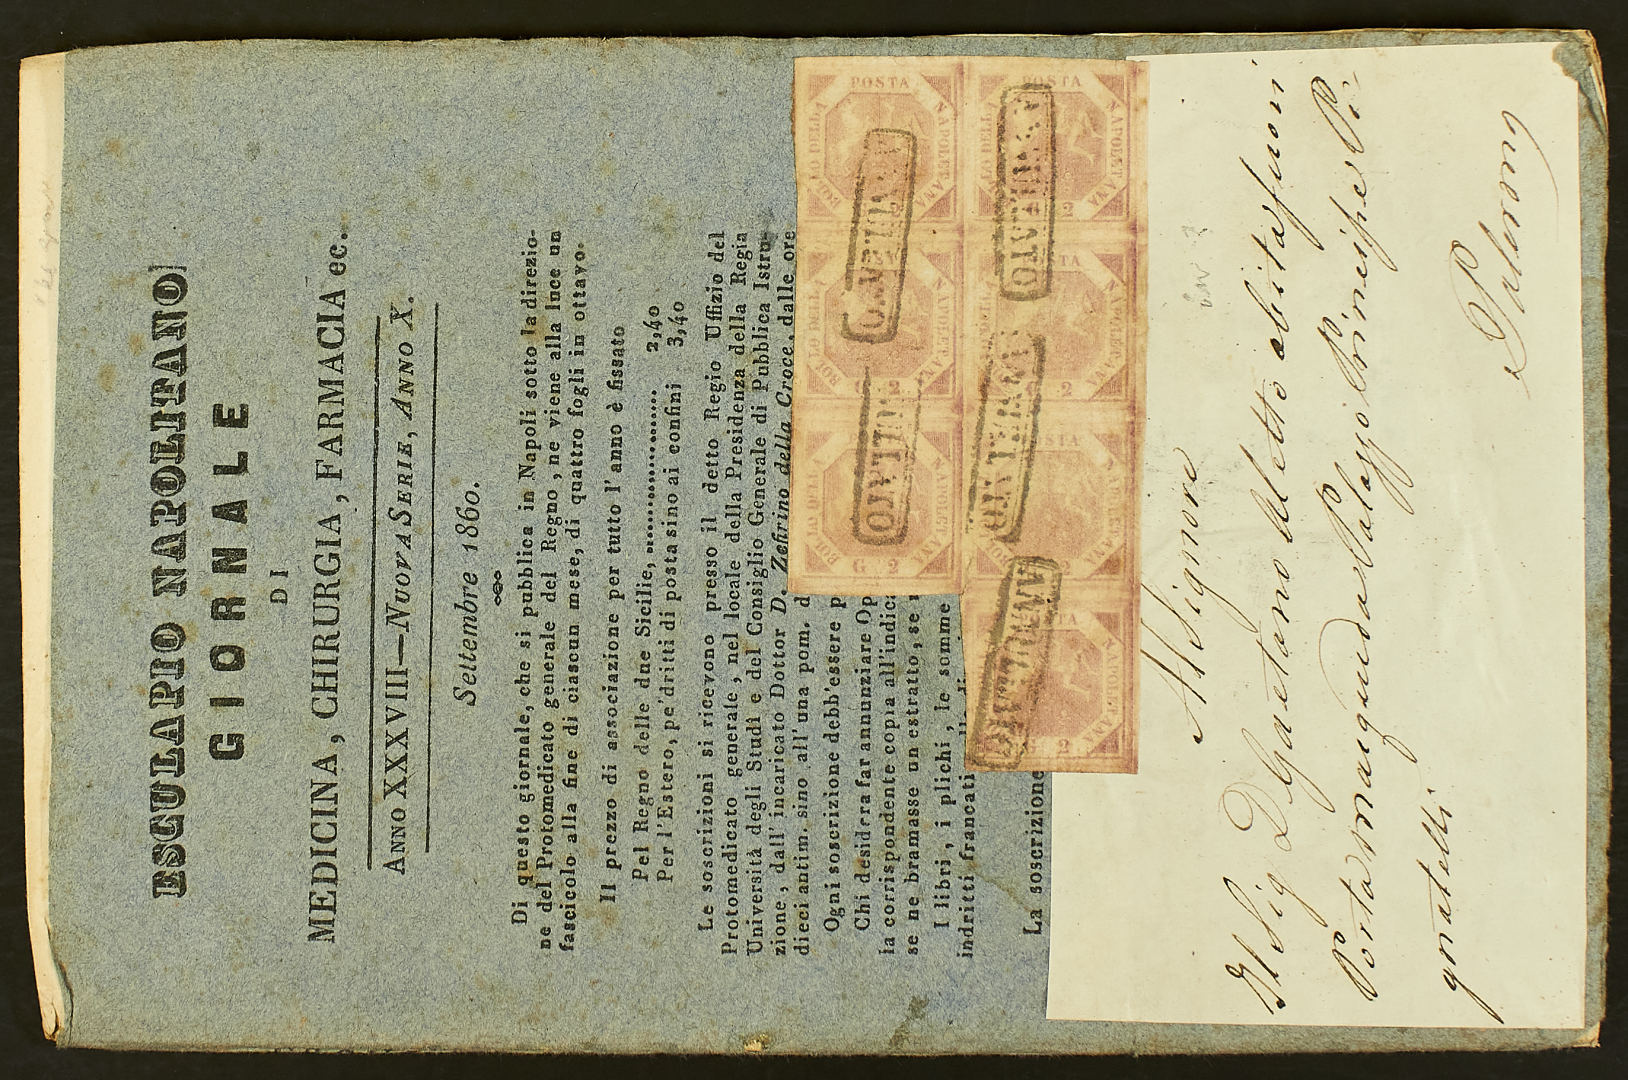 ESCULAPIO NAPOLITANO
GIORNALE
DI
MEDICINA, CHIRURGIA, FARMACIA ec.
ANNO XXXVIII—NUOVA SERIE, ANNO X.
Settembre 1860.
Di questo giornale, che si pubblica in Napoli sotto la direzio-
ne del Protomedicato generale del Regno, ne viene alla luce un
fascicolo alla fine di ciascun mese, di quattro fogli in ottavo.
Il prezzo di associazione per tutto l'anno è fissato
Pel Regno delle due Sicilie, .................. 2,40
Per l'Estero, pe'dritti di posta sino ai confini 3,40
Le soscrizioni si ricevono presso il detto Regio Uffizio del
Protomedicato generale, nel locale della Presidenza della Regia
Università degli Studi e del Consiglio Generale di Pubblica Istru-
zione, dall'incaricato Dottor D. Zefirino della Croce, dalle ore
dieci antim. sino all'una pom. d
Ogni soscrizione debb'essere p
Chi desidera far annunziare Op
la corrispondente copia all'indica
se ne bramasse un estratto, se
I libri, i plichi, le somme
indritti francati
La soscrizione
BOLLO DELLA POSTA NAPOLETANA G 2
BOLLO DELLA POSTA NAPOLETANA 2
BOLLO DELLA POSTA NAPOLETANA
POSTA NAPOLETANA 2
POSTA NAPOLETANA 2
POSTA NAPOLETANA 2
BOLLO DELLA POSTA NAPOLETANA G 2
ANNULLATO
ANNULLATO
ANNULLATO
ANNULLATO
ANNULLATO
Al Signore
Il Sig D Gaetano
Porta Palazzo Principe Pi-
gnatelli
Palermo